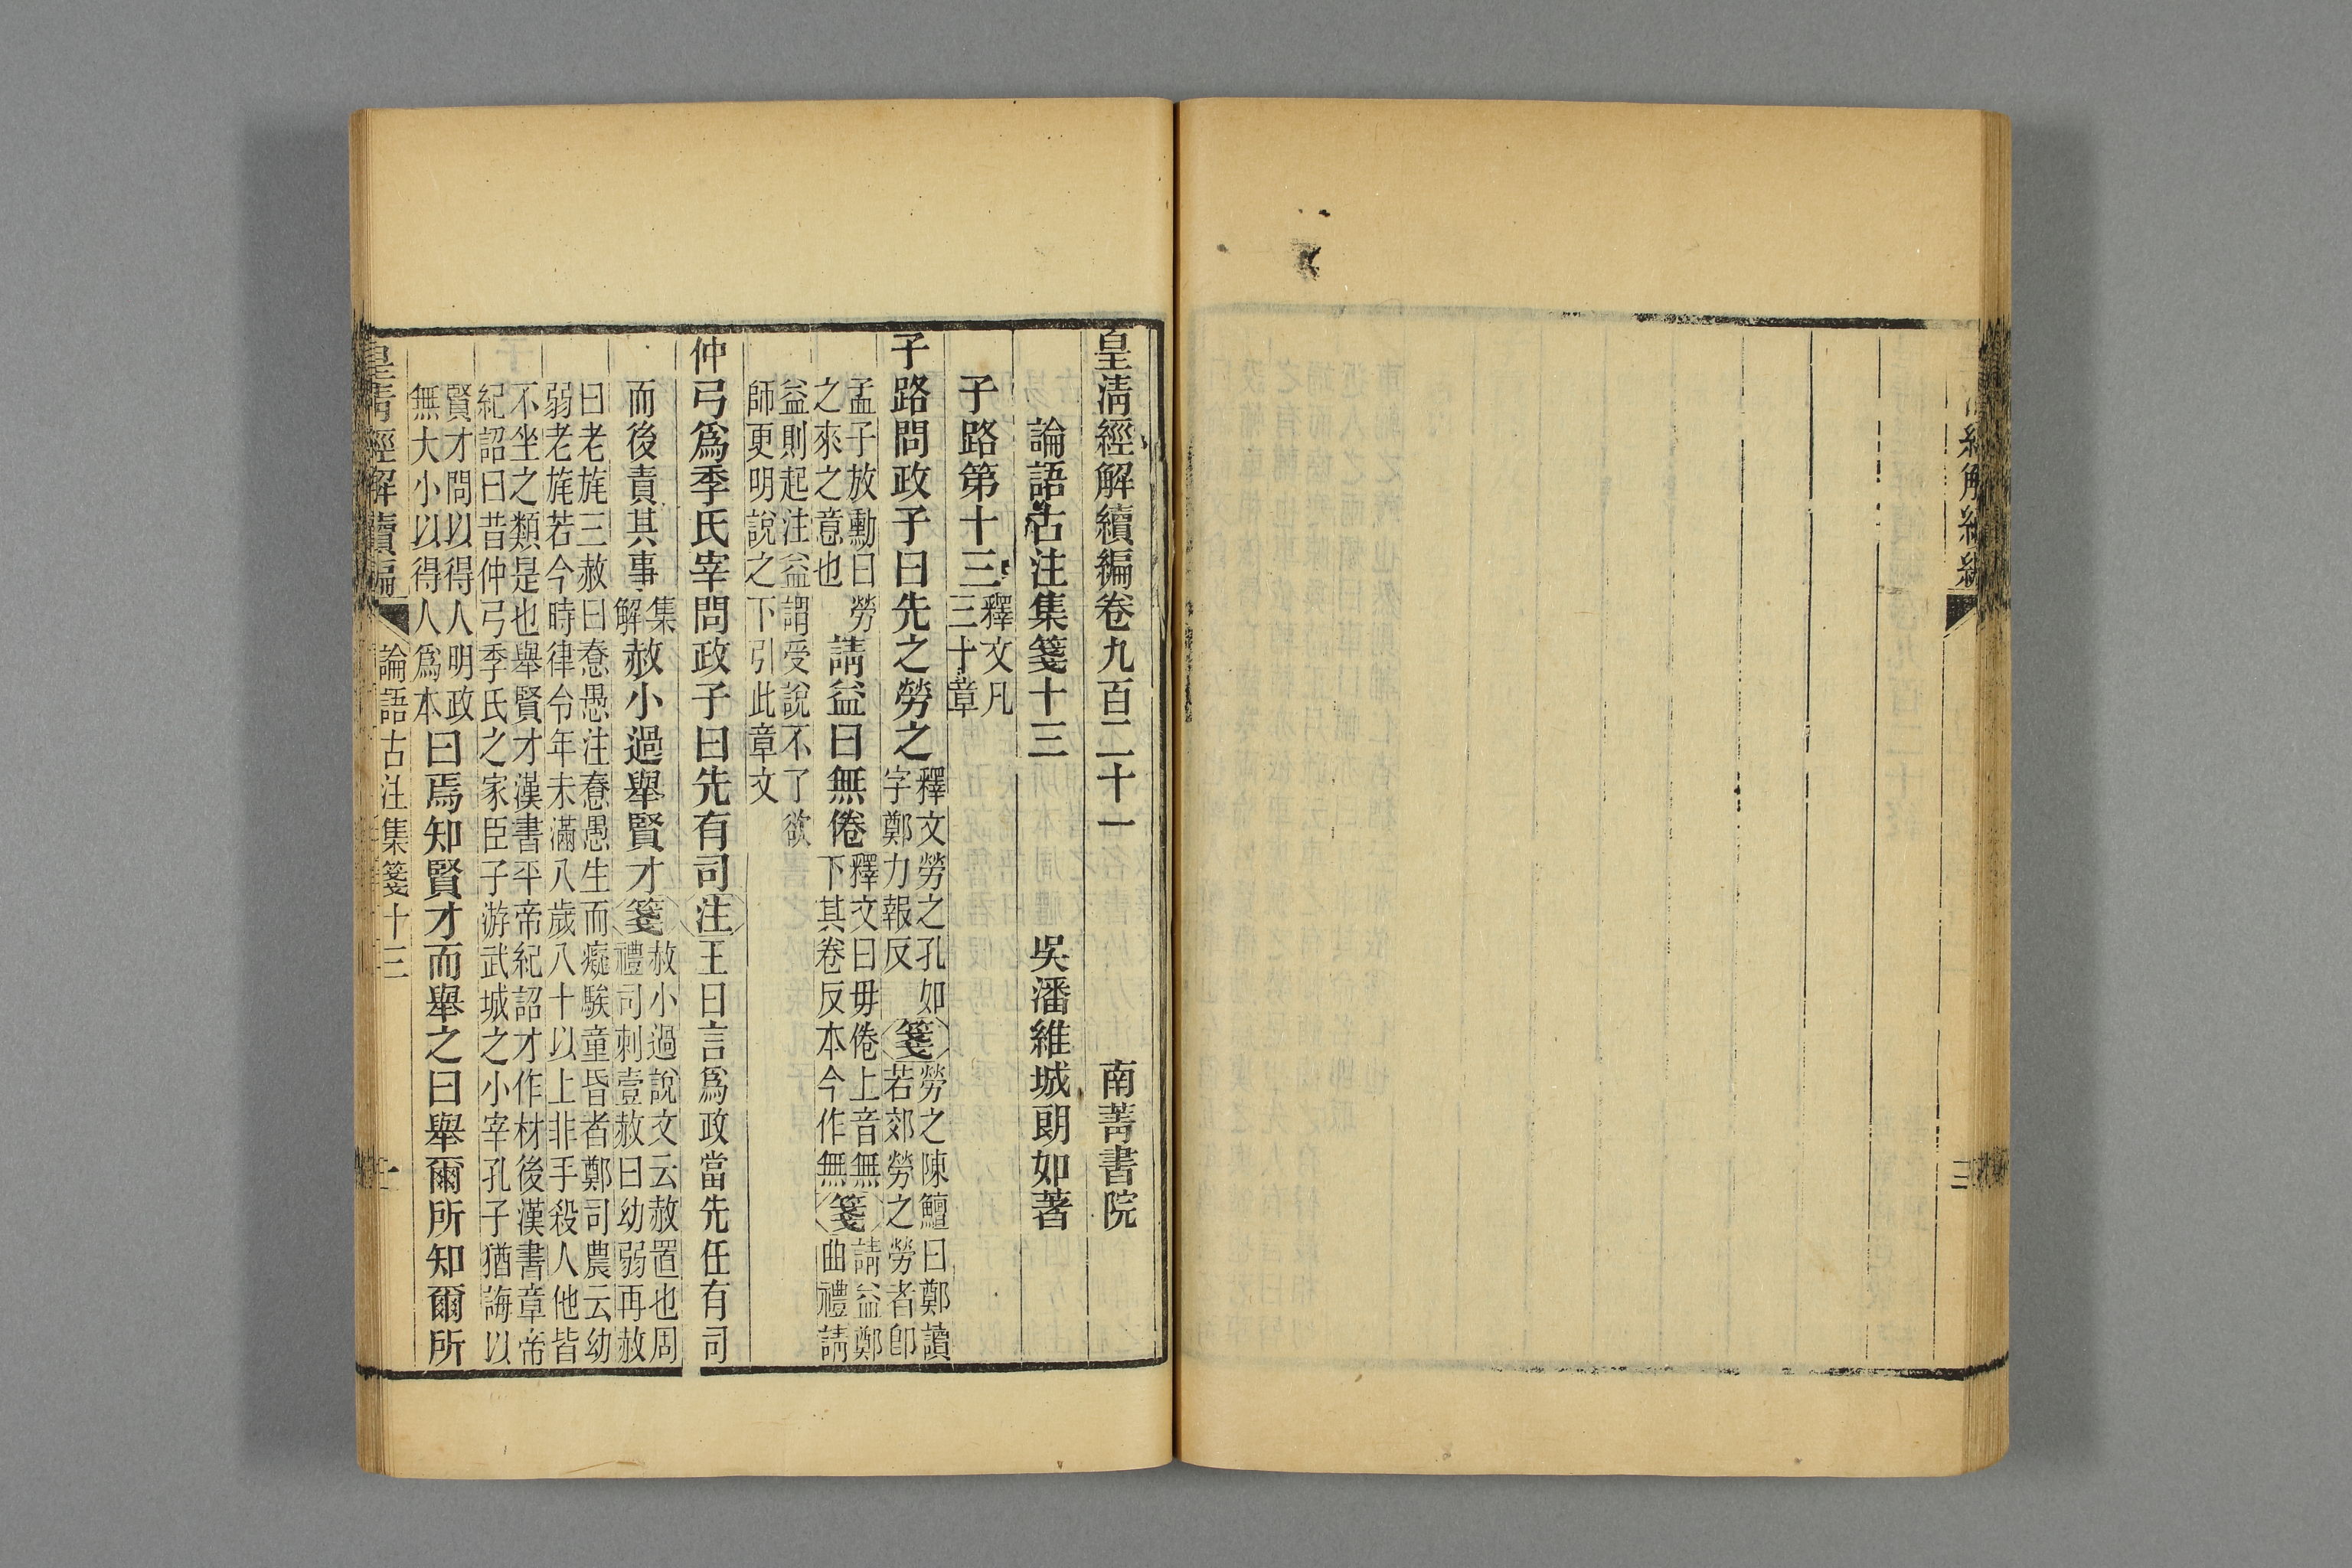 皇清經解續編卷九百二十一　南菁書院
論語古注集箋十三　吳潘維城朗如著
子路第十三
釋文凡
三十章
子路問政子曰先之勞之
釋文勞之孔如
字鄭力報反
箋
勞之陳鱣曰鄭讀
若郊勞之勞者卽
孟子放勳曰勞
之來之意也
請益曰無倦
釋文曰毋倦上音無
下其卷反本今作無
箋
請益鄭
曲禮請
益則起注益謂受說不了欲
師更明說之下引此章文
仲弓爲季氏宰問政子曰先有司注王曰言爲政當先任有司
而後責其事
集
解
赦小過舉賢才箋
赦小過說文云赦置也周
禮司刺壹赦曰幼弱再赦
曰老旄三赦曰惷愚注惷愚生而癡騃童昏者鄭司農云幼
弱老旄若今時律令年未滿八歲八十以上非手殺人他皆
不坐之類是也舉賢才漢書平帝紀詔才作材後漢書章帝
紀詔曰昔仲弓季氏之家臣子游武城之小宰孔子猶誨以
賢才問以得人明政
無大小以得人爲本
曰焉知賢才而舉之曰舉爾所知爾所
皇清經解續編　論語古注集箋十三　一
三